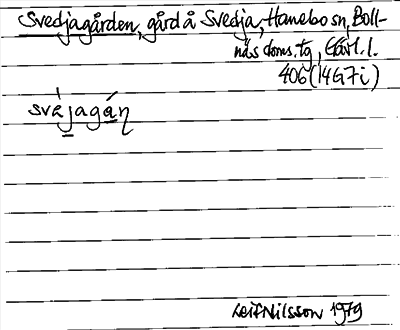 Svedjagården, gård å Svedja, Hanebo sn, Boll-
näs doms. tg, Gävl. l.
406 (14G7i)
svè̱jagá̱ŋ
Leif Nilsson 1979